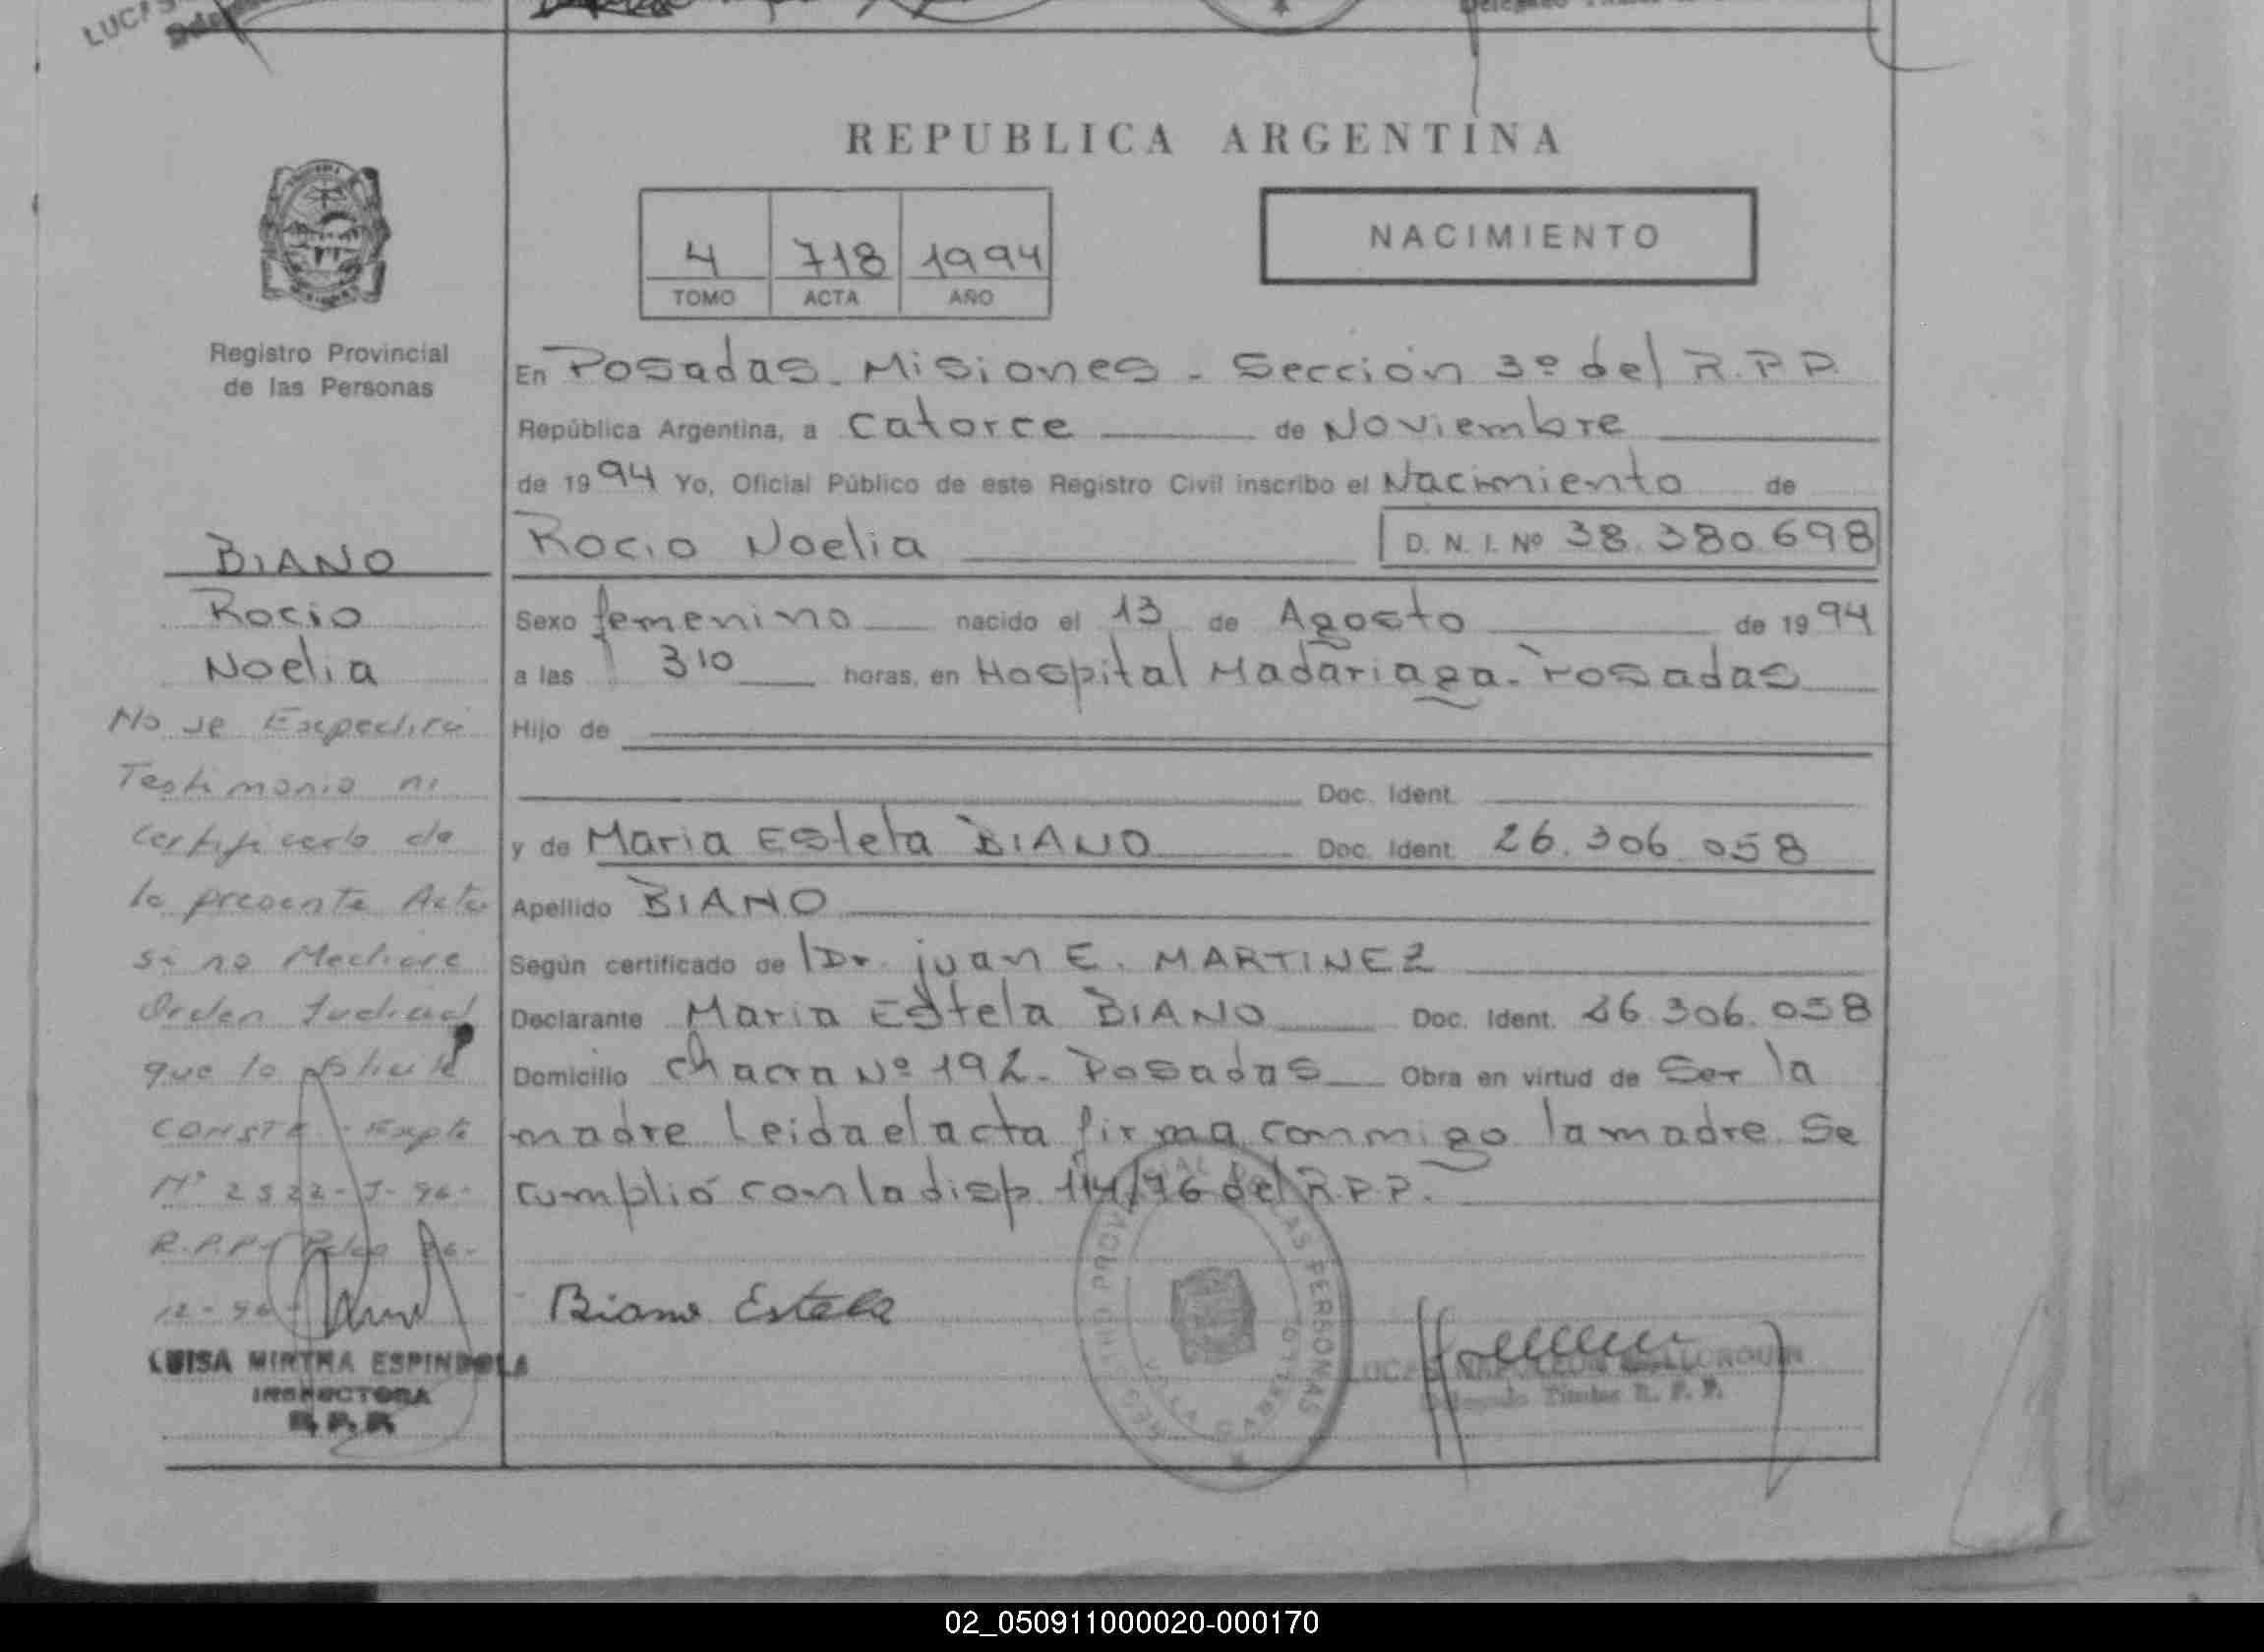 REPUBLICA ARGENTINA
4 718 1994
TOMO ACTA AÑO
NACIMIENTO
Registro Provincial
de las Personas
En Posadas. Misiones - Sección 3º del R.P.P.
República Argentina, a catorce de Noviembre
de 1994 Yo, Oficial Público de este Registro Civil inscribo el Nacimiento de
Rocio Noelia D. N. I. Nº 38.380.698
Sexo femenino nacido el 13 de Agosto de 1994
a las 3 10 horas, en Hospital Madariaga. Posadas
Hijo de
Doc. Ident.
y de Maria Estela BIANO Doc. Ident. 26.306.058
Apellido BIANO
Según certificado de Dr. juan E. MARTINEZ
Declarante Maria Estela BIANO Doc. Ident. 26.306.058
Domicilio chacra Nº 192. Posadas Obra en virtud de Ser la
madre Leida el acta firma conmigo la madre. Se
cumplió con la disp. 114/76 del R.P.P.
Biano Estela
LUCAS NAPOLEON MALLORQUIN
Delegado Titular R. P. P.
BIANO
Rocio
Noelia
No se Expedira
Testimonio ni
Certificado de
la presente Acta
si no Mediare
Orden Judicial
que lo solicite
CONSTE - Expte
Nº 2522-J-96-
R.P.P.
12-96-
LUISA MIRTHA ESPINDOLA
INSPECTORA
R. P. P.
02_050911000020-000170